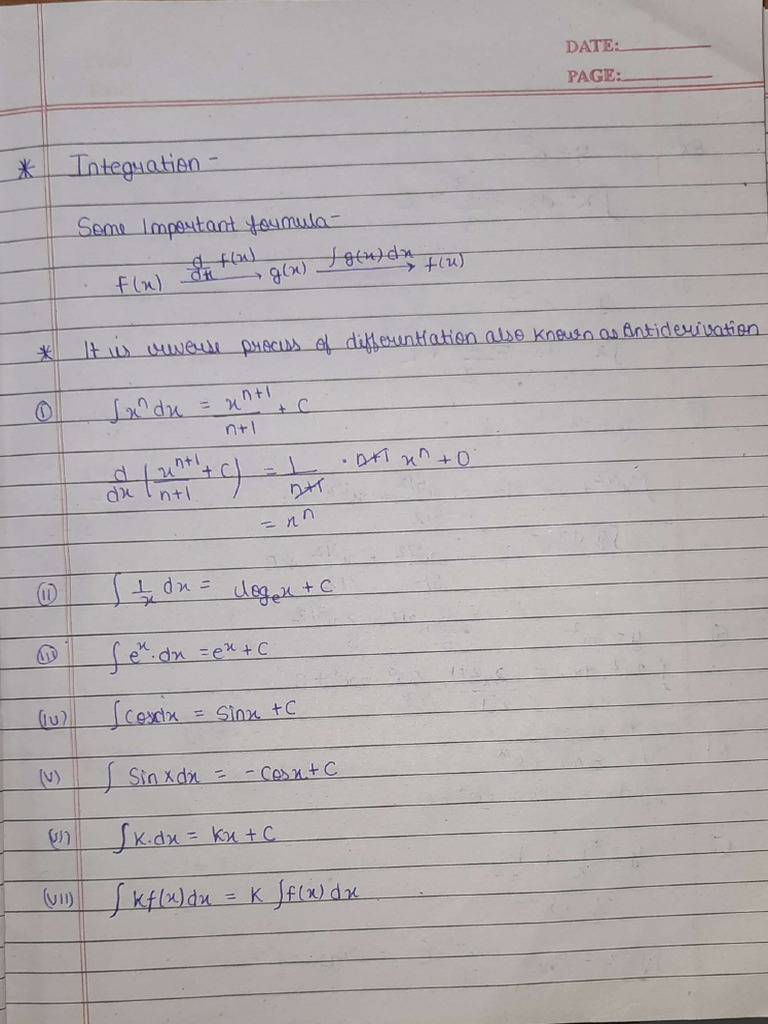 DATE:
PAGE:
* Integration -
Some Important formula -
f(x) d/dx f(x) → g(x) ∫g(x)dx → f(x)
* It is reverse process of differentiation also known as Antiderivation
(i) ∫xⁿ dx = xⁿ⁺¹/n+1 + C
d/dx (xⁿ⁺¹/n+1 + C) = 1/n+1 · n+1 xⁿ + 0
= xⁿ
(ii) ∫ 1/x dx = logₑx + C
(iii) ∫eˣ·dx = eˣ + C
(iv) ∫Cosxdx = Sinx + C
(v) ∫ Sinxdx = -Cosx + C
(vi) ∫K·dx = Kx + C
(vii) ∫Kf(x)dx = K ∫f(x)dx